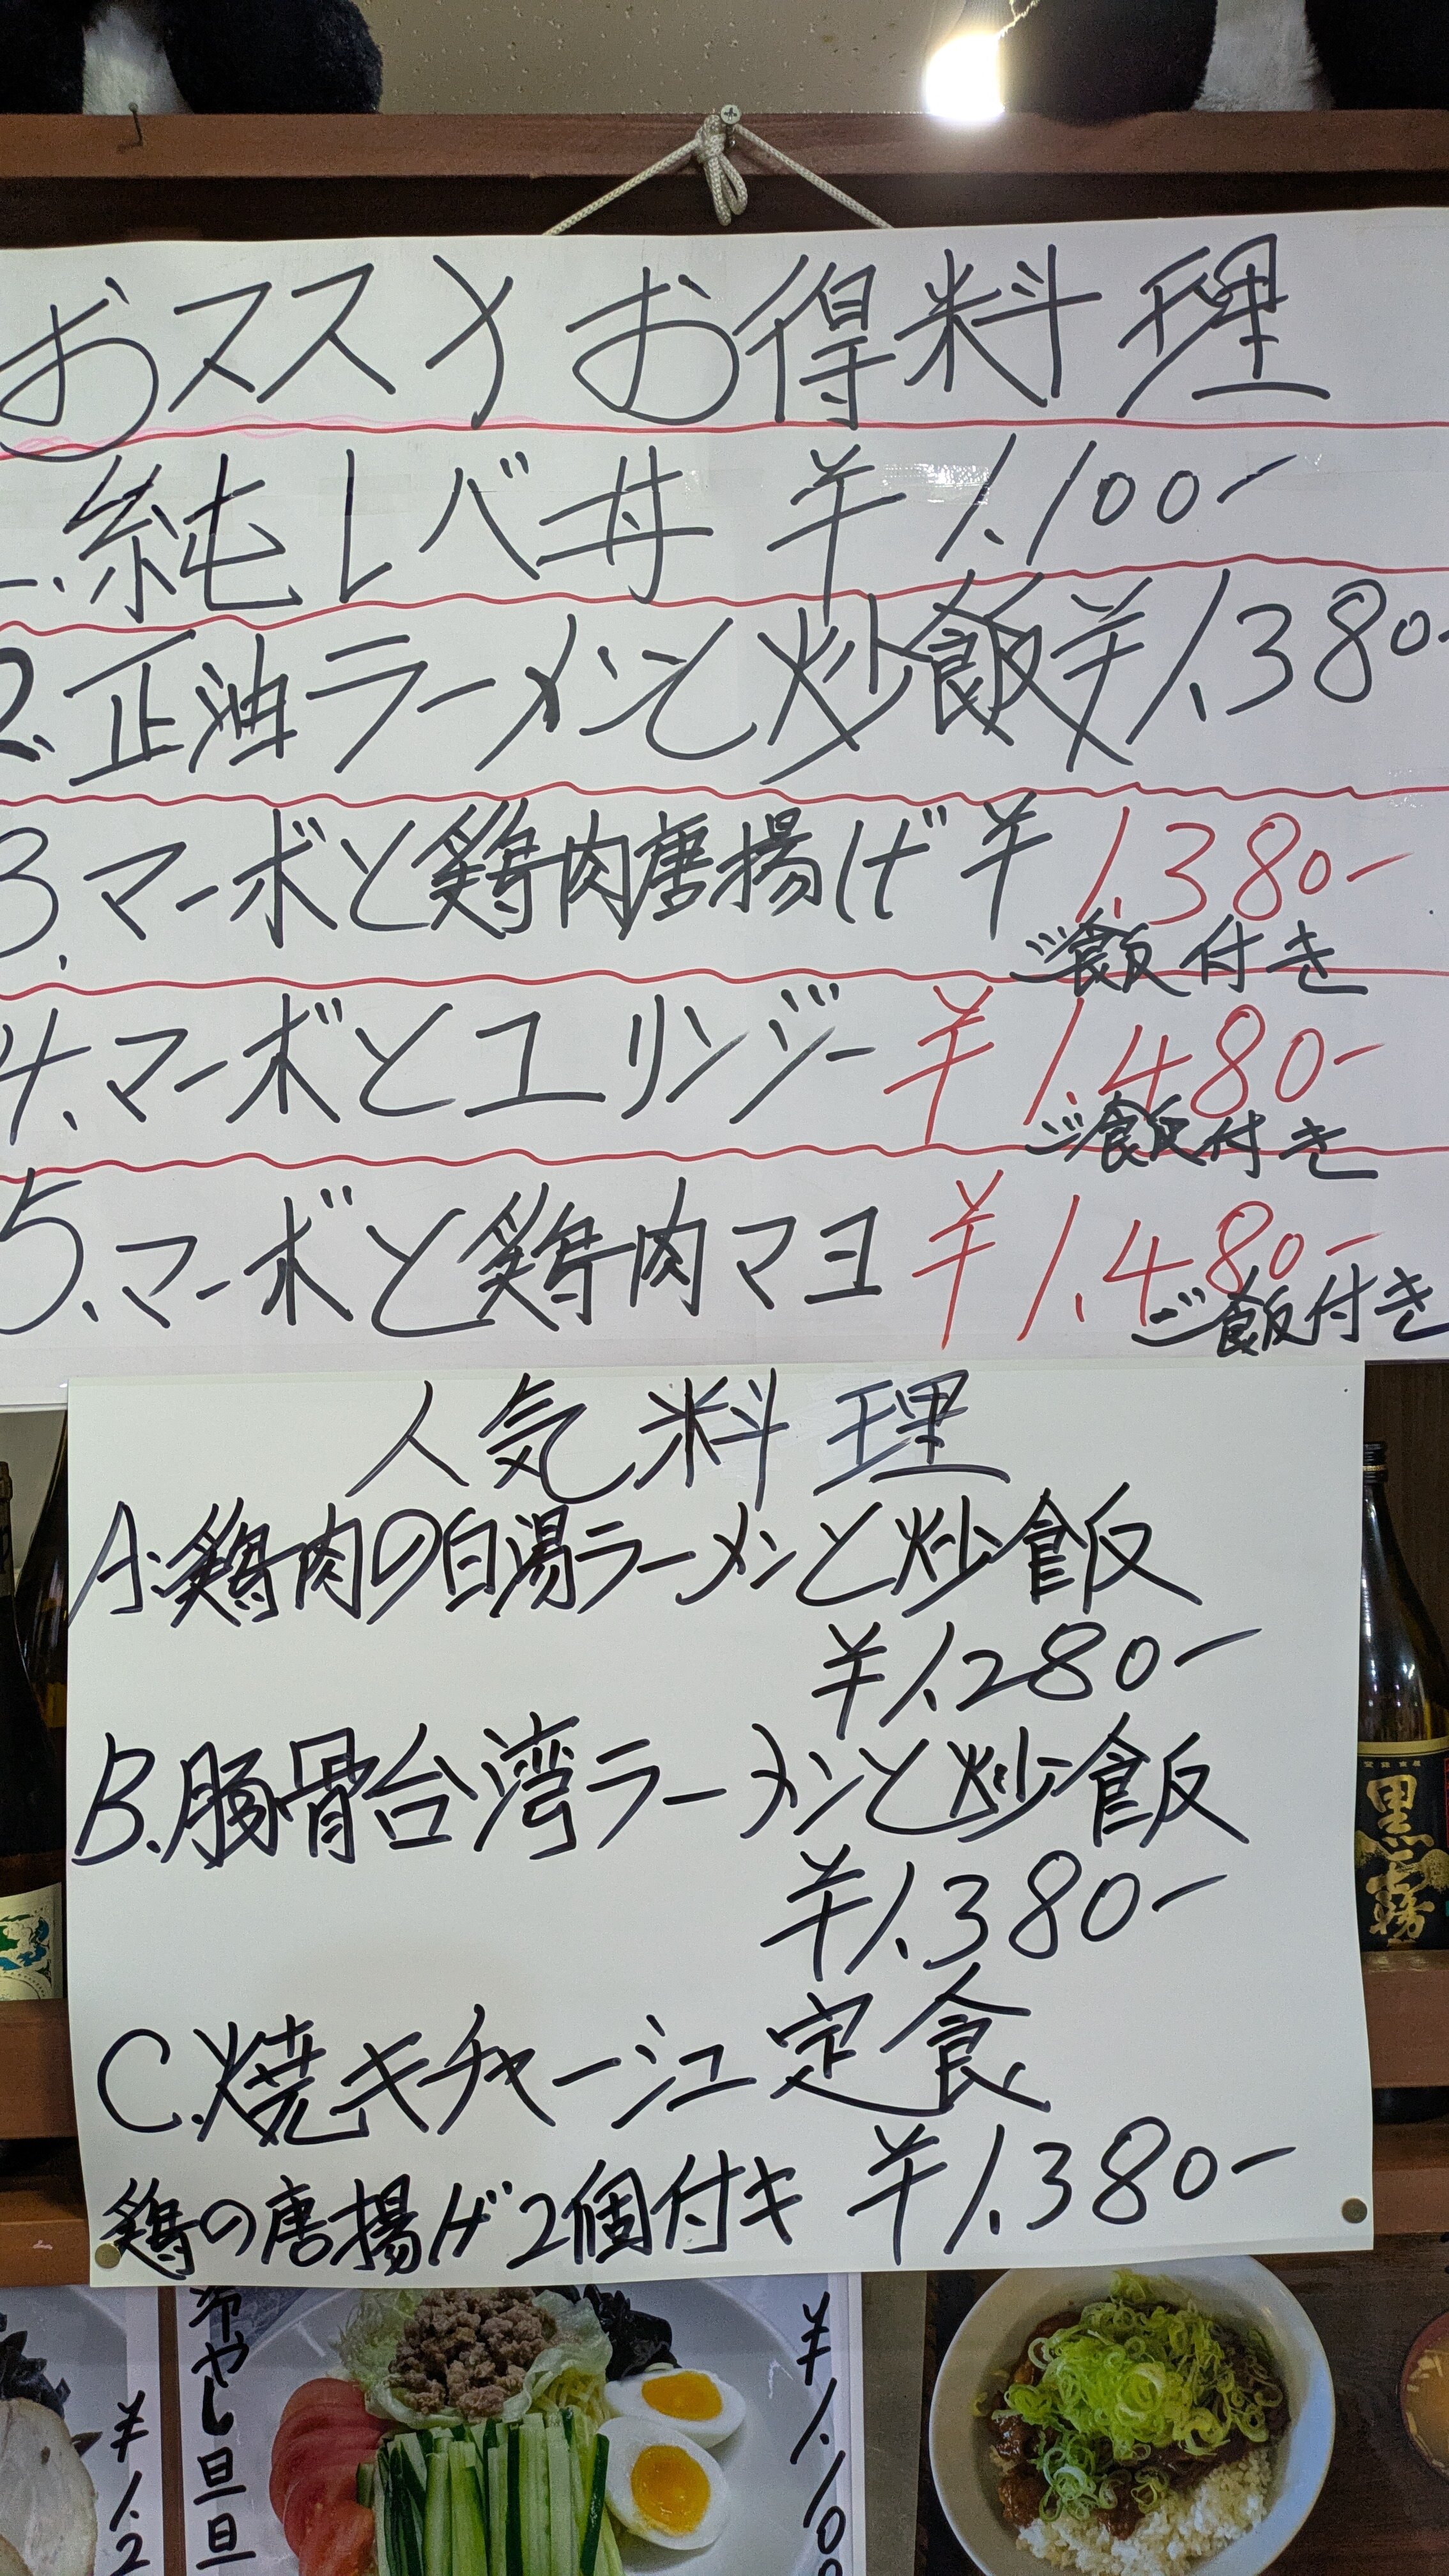 おススメお得料理
1.純レバ丼 ¥1.100-
2.正油ラーメンと炒飯¥1.380-
3.マーボと鶏肉唐揚げ ¥1.380-
ご飯付き
4.マーボとユリンジー ¥1.480-
ご飯付き
5.マーボと鶏肉マヨ ¥1.480-
ご飯付き
人気料理
A.鶏肉の白湯ラーメンと炒飯
¥1.280-
B.豚骨台湾ラーメンと炒飯
¥1.380-
C.焼きチャーシュー定食
鶏の唐揚げ2個付キ ¥1.380-
黒霧
冷やし旦旦
¥1.2
¥1.100